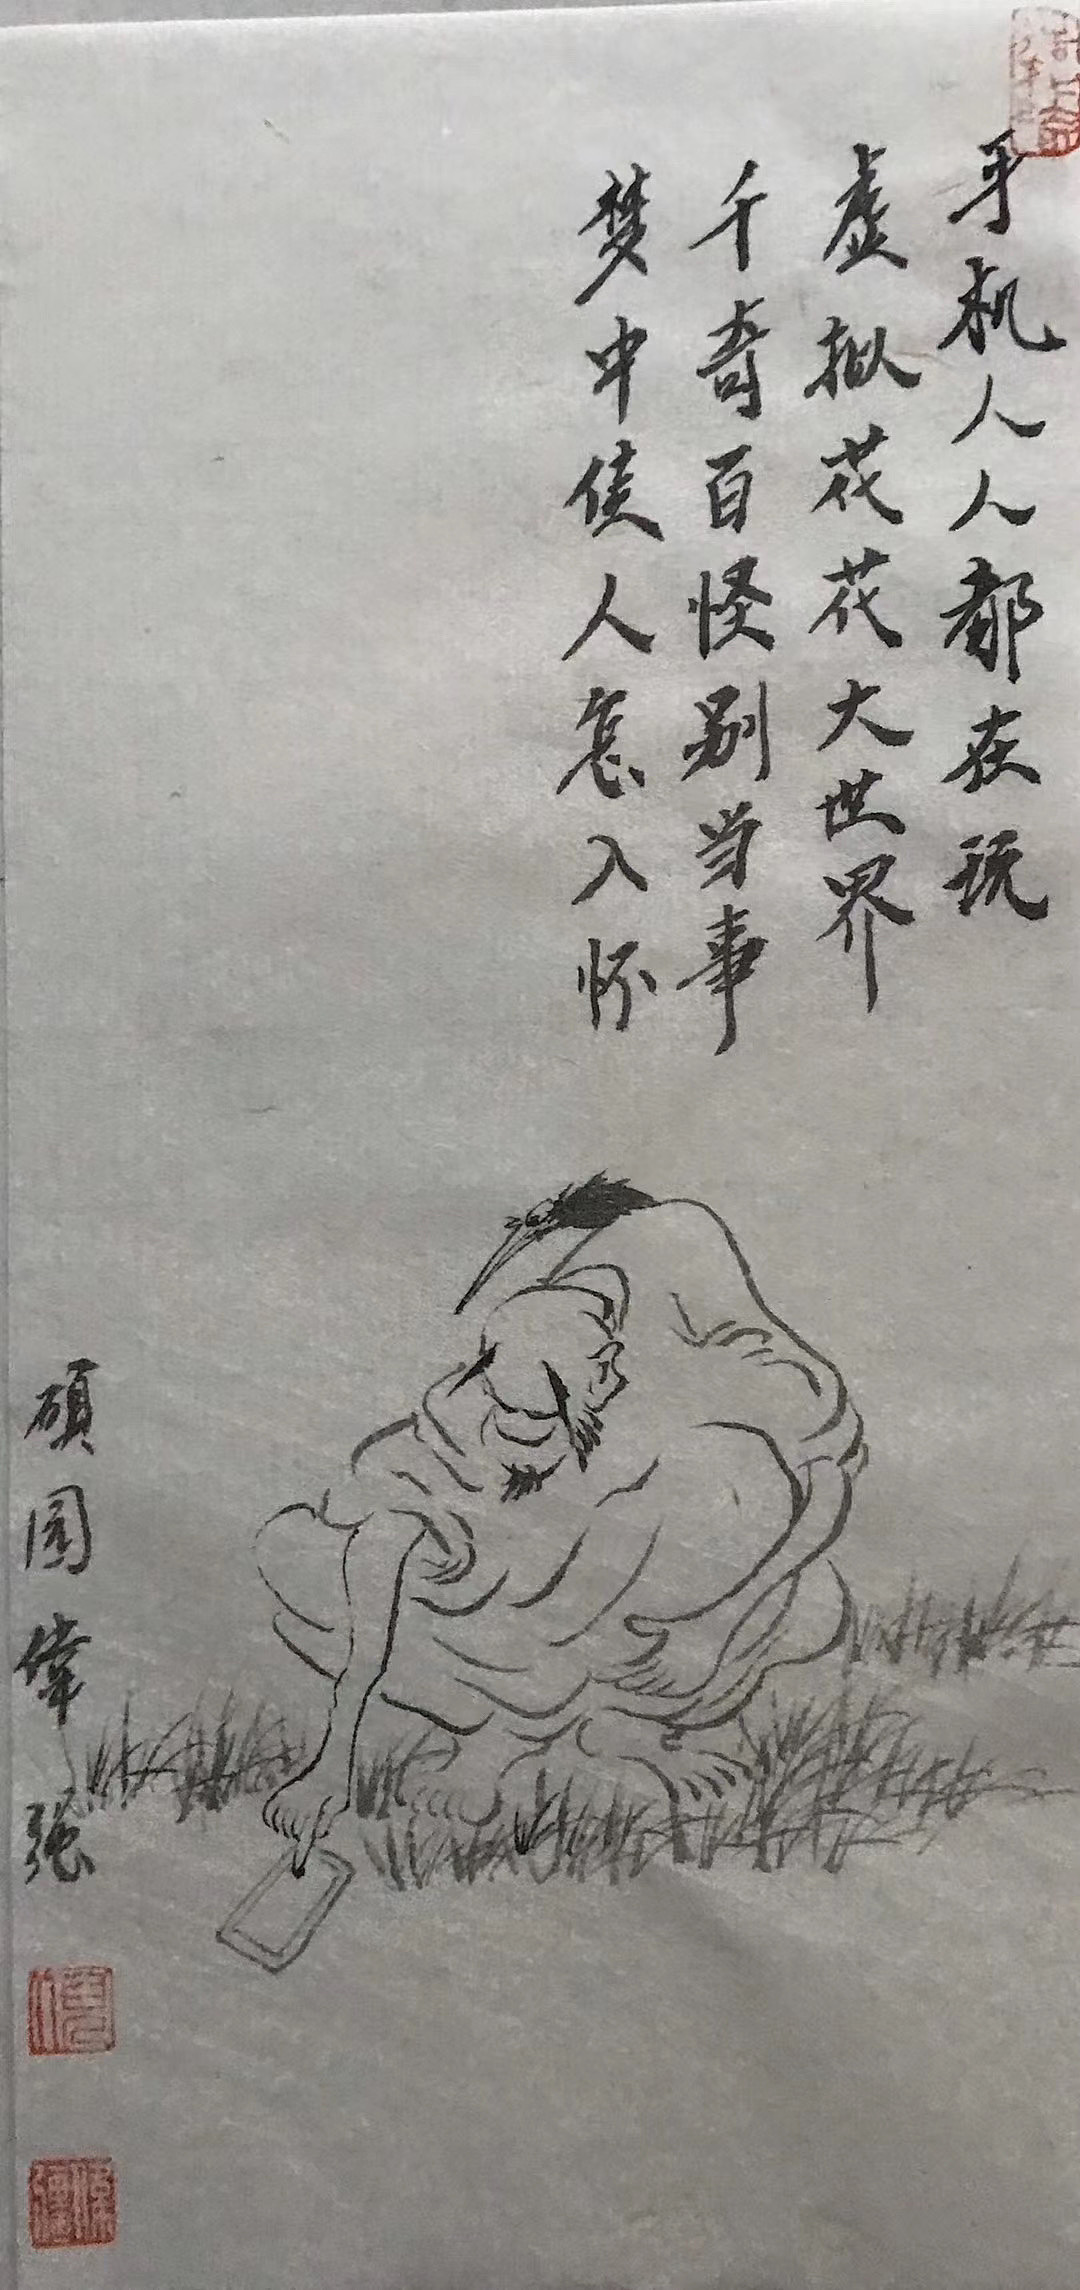 手机人人都在玩
虚拟花花大世界
千奇百怪别当事
梦中侯人怎入怀
硕园伟强